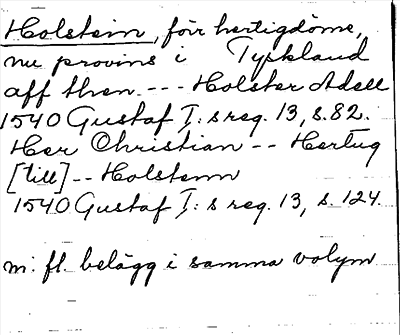 Holstein, förr hertigdöme,
nu provins i Tyskland
aff then. --- Holster Adell
1540 Gustaf I: s reg. 13, s. 82.
Her Christian -- Hertug
[till] -- Holstenn
1540 Gustaf I: s reg. 13, s. 124.
m. fl. belägg i samma volym.